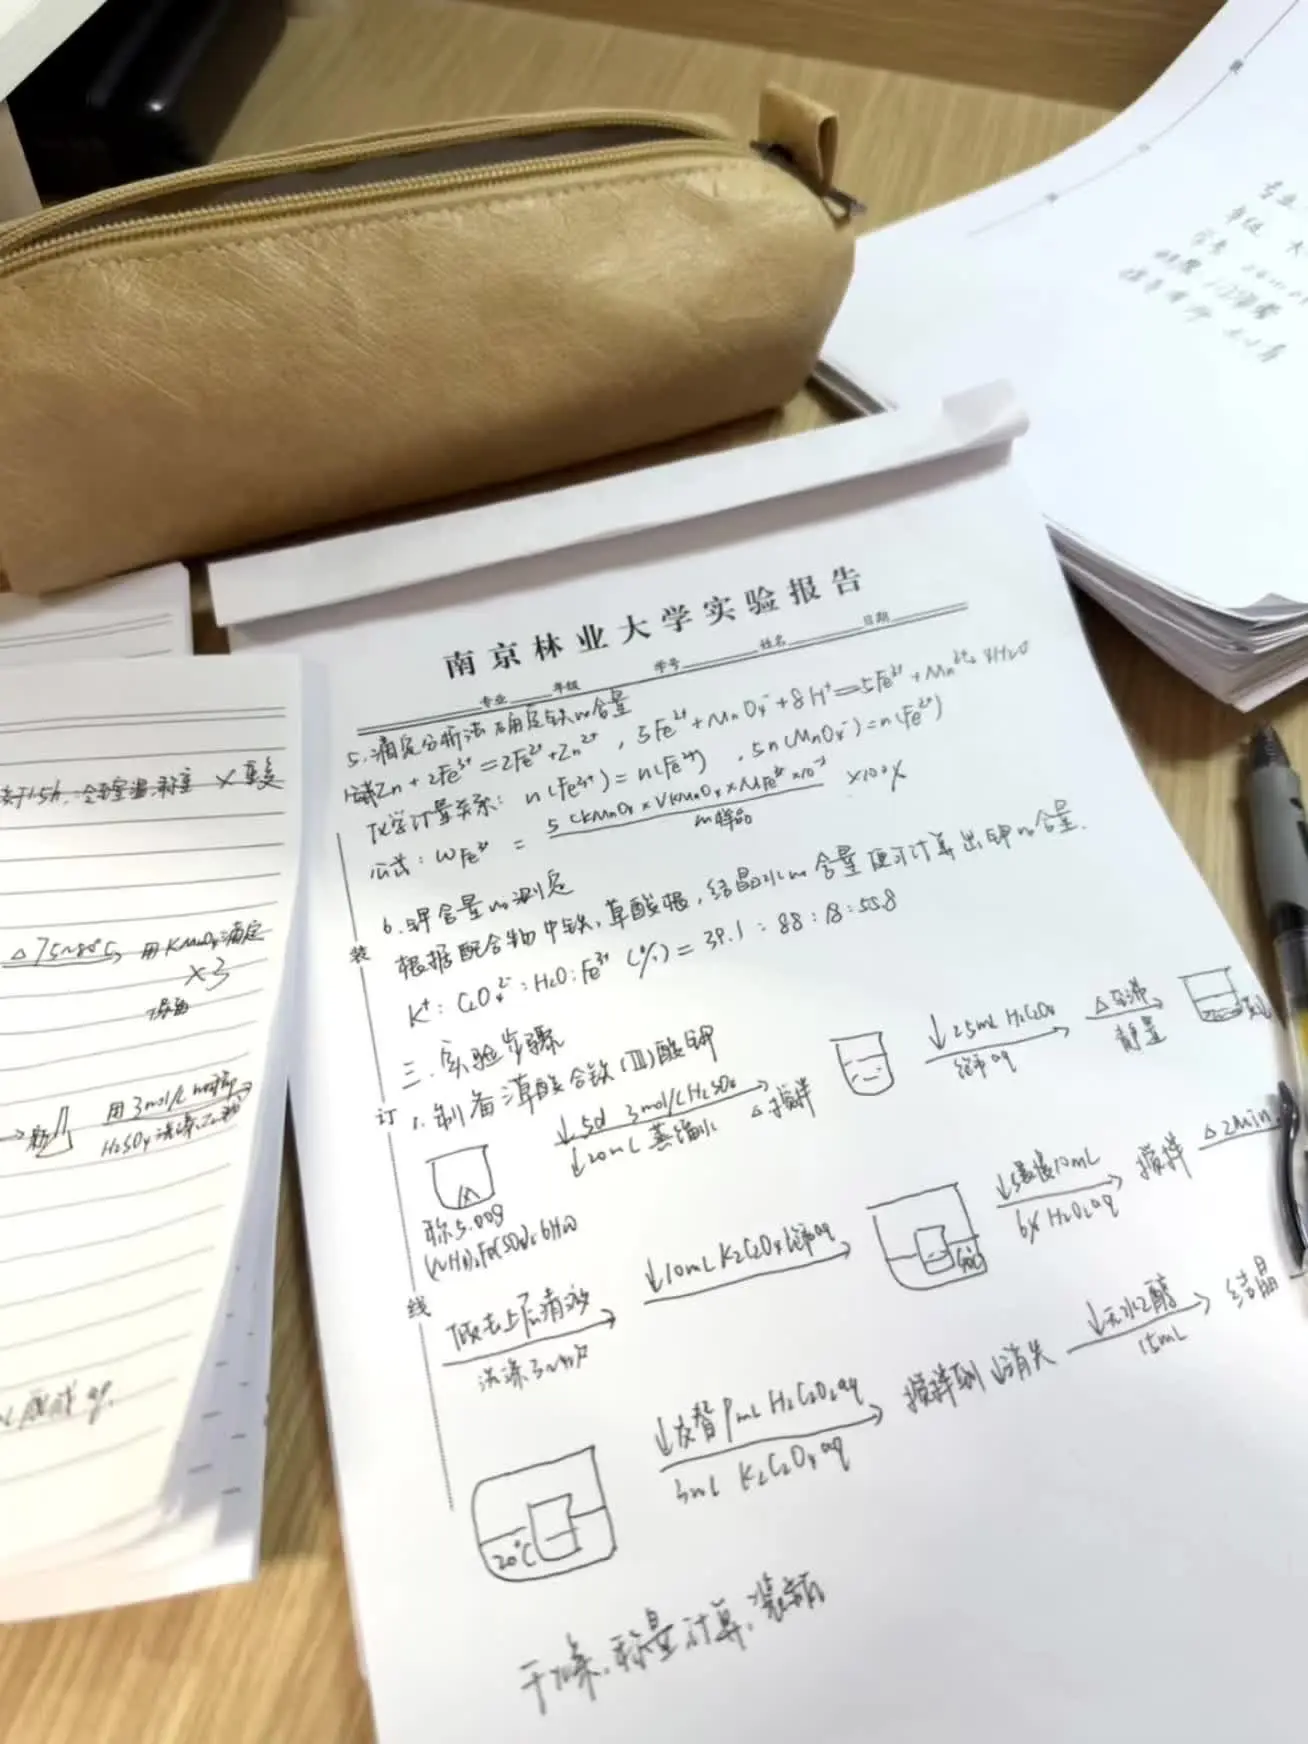 南京林业大学实验报告
专业 年级 学号 姓名 日期
5.滴定分析法确定铁的含量
Zn + 2Fe³⁺ = 2Fe²⁺ + Zn²⁺, 5Fe²⁺ + MnO₄⁻ + 8H⁺ = 5Fe³⁺ + Mn²⁺ + 4H₂O
化学计量关系: n(Fe³⁺) = n(Fe²⁺), 5n(MnO₄⁻) = n(Fe²⁺)
公式: ωFe³⁺ = 5 CKMnO₄ × VKMnO₄ × MFe³⁺ × 10⁻³ / m样品 × 100%
6.钾含量的测定
根据配合物中铁,草酸根,结晶水的含量便可计算出钾的含量.
K⁺: C₂O₄²⁻: H₂O: Fe³⁺ (%) = 39.1 : 88 : 18 : 55.8
三.实验步骤
1.制备草酸合铁(Ⅲ)酸钾
↓5d 3mol/L H₂SO₄
↓20mL 蒸馏水 △搅拌
↓25mL H₂C₂O₄
饱和aq
△至沸
静置
称5.00g
(NH₄)₂Fe(SO₄)₂·6H₂O
倾去上层清液
洗涤
↓10mL K₂C₂O₄饱和aq
40℃
↓慢10mL
6% H₂O₂aq
搅拌 △2min
20℃
↓交替9mL H₂C₂O₄aq
3mL K₂C₂O₄aq
搅拌到↓消失
↓无水乙醇
15mL
结晶
干燥,称量计算,装瓶
装
订
线
1.5h,冷至室温,称重 ×重复
△75~85℃ 用KMnO₄滴定
×3
用3mol/L
H₂SO₄洗涤
aq.
专业
年级
学号